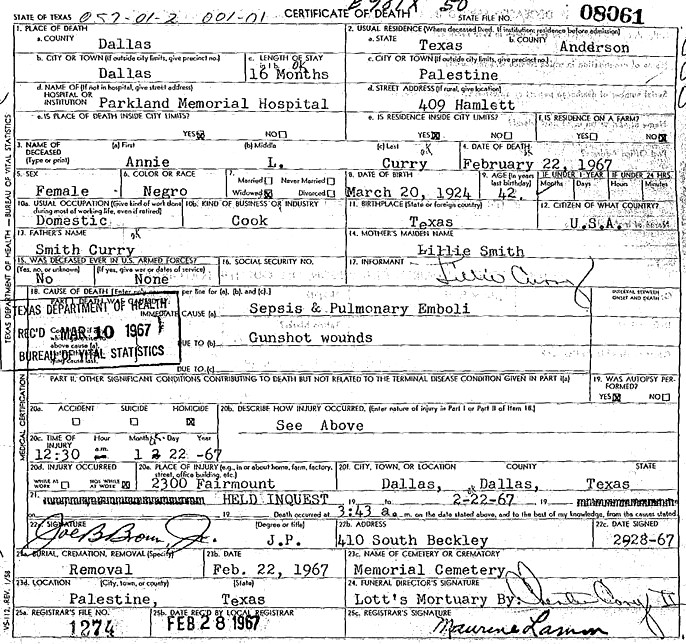 STATE OF TEXAS 057-01-2 001-01 CERTIFICATE OF DEATH STATE FILE NO. 08061
1. PLACE OF DEATH 2. USUAL RESIDENCE (Where deceased lived. If institution: residence before admission)
a. COUNTY Dallas a. STATE Texas b. COUNTY Anddrson
b. CITY OR TOWN (If outside city limits, give precinct no.) Dallas c. LENGTH OF STAY 16 Months c. CITY OR TOWN (If outside city limits, give precinct no.) Palestine
d. NAME OF (If not in hospital, give street address) HOSPITAL OR INSTITUTION Parkland Memorial Hospital d. STREET ADDRESS (If rural, give location) 409 Hamlett
e. IS PLACE OF DEATH INSIDE CITY LIMITS? YES NO e. IS RESIDENCE INSIDE CITY LIMITS? YES NO f. IS RESIDENCE ON A FARM? YES NO
3. NAME OF DECEASED (Type or print) (a) First Annie (b) Middle L. (c) Last Curry 4. DATE OF DEATH February 22, 1967
5. SEX Female 6. COLOR OR RACE Negro 7. Married Never Married Widowed Divorced 8. DATE OF BIRTH March 20, 1924 9. AGE (In years last birthday) 42. IF UNDER 1 YEAR Months Days IF UNDER 24 HRS. Hours Minutes
10a. USUAL OCCUPATION (Give kind of work done during most of working life, even if retired) Domestic 10b. KIND OF BUSINESS OR INDUSTRY Cook 11. BIRTHPLACE (State or foreign country) Texas 12. CITIZEN OF WHAT COUNTRY? U.S.A.
13. FATHER'S NAME Smith Curry 14. MOTHER'S MAIDEN NAME Lillie Smith
15. WAS DECEASED EVER IN U.S. ARMED FORCES? (Yes, no, or unknown) No (If yes, give war or dates of service) None 16. SOCIAL SECURITY NO. 17. INFORMANT Lillie Curry
18. CAUSE OF DEATH (Enter only one cause per line for (a), (b), and (c).) INTERVAL BETWEEN ONSET AND DEATH
PART I. DEATH WAS CAUSED BY: IMMEDIATE CAUSE (a) Sepsis & Pulmonary Emboli
DUE TO (b) Gunshot wounds
DUE TO (c)
TEXAS DEPARTMENT OF HEALTH
REC'D MAR 10 1967
BUREAU OF VITAL STATISTICS
PART II. OTHER SIGNIFICANT CONDITIONS CONTRIBUTING TO DEATH BUT NOT RELATED TO THE TERMINAL DISEASE CONDITION GIVEN IN PART I(a) 19. WAS AUTOPSY PERFORMED? YES NO
20a. ACCIDENT SUICIDE HOMICIDE 20b. DESCRIBE HOW INJURY OCCURRED. (Enter nature of injury in Part I or Part II of Item 18.)
See Above
20c. TIME OF INJURY Hour Month Day Year 12:30 a.m. 1 22 -67
20d. INJURY OCCURRED WHILE AT WORK NOT WHILE AT WORK 20e. PLACE OF INJURY (e.g., in or about home, farm, factory, street, office building, etc.) 2300 Fairmount 20f. CITY, TOWN, OR LOCATION COUNTY STATE Dallas, Dallas, Texas
21. HELD INQUEST 19 to 2-22-67 19
19 Death occurred at 3:43 a.m. on the date stated above, and to the best of my knowledge, from the causes stated.
22a. SIGNATURE Joe B. Brown Jr. (Degree or title) J.P. 22b. ADDRESS 410 South Beckley 22c. DATE SIGNED 2928-67
23a. BURIAL, CREMATION, REMOVAL (Specify) Removal 23b. DATE Feb. 22, 1967 23c. NAME OF CEMETERY OR CREMATORY Memorial Cemetery
23d. LOCATION (City, town, or county) (State) Palestine, Texas 24. FUNERAL DIRECTOR'S SIGNATURE Lott's Mortuary By:
25a. REGISTRAR'S FILE NO. 1274 25b. DATE REC'D BY LOCAL REGISTRAR FEB 28 1967 25c. REGISTRAR'S SIGNATURE Maurine Lamm
TEXAS DEPARTMENT OF HEALTH — BUREAU OF VITAL STATISTICS
MEDICAL CERTIFICATION
VS-112, REV. 1/58